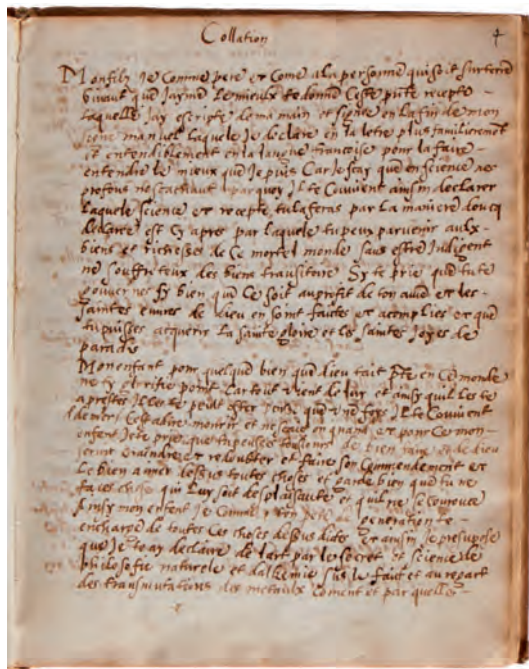 Collation
4
Mon filz Je Comme pere et Come a la personne qui soit sur terre
vivant que Jayme le mieux te donne Ceste pnte recepte
laquelle Jay escripte de ma main et signee en la fin de mon
signe manuel laquele Je declare en la letre plus familierement
et entendiblement en la langue francoise pour la faire
entendre le mieux que Je puis Car Je scay que en science ne
parquoy Il te Convient ainsin declarer
laquele science et recepte tu la feras par la maniere
declaree est Cy apres par laquele tu peux parvenir aulx
biens et richesses de Ce mortel monde sans estre Indigent
ne souffreteux des biens transitoire Sy te prie que tu te
gouvernes sy bien que Ce soit au profit de ton ame et les
saintes euvres de dieu en soint faictes et acomplies et que
tu puisses acquerir La sainte gloire et les saintes Joyes de
paradis
Mon enfant pour quelque bien que dieu tait pte en Ce monde
ne ty glorifie point Car tout vient de luy et ainsy quil les te
a prestes Il les te peult oster puis que une foys Il te Convient
Cest a dire mourir et ne scais ou quand et pour Ce mon
enfant Je te prie que tu puisses tousiours de bien faire de dieu
craindre et redoubter et faire son Commendement et
le bien aimer dessus toutes choses et garde bien que tu ne
faces chose qui Luy soit desplaisante et quil ne se courouce
Ainsy mon enfant Je generation te
encharge de toutes Ces choses dessus dites et ainsin Je presupose
que Je tay declaire de lart par le secret et science de
philosofie naturele et dalkemie sus le fait et au regart
des transmutations des metaulx Coment et par quelle